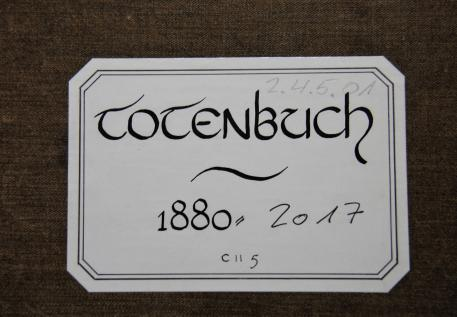 2.4.5.01
TOTENBUCH
1880" 2017
C II 5